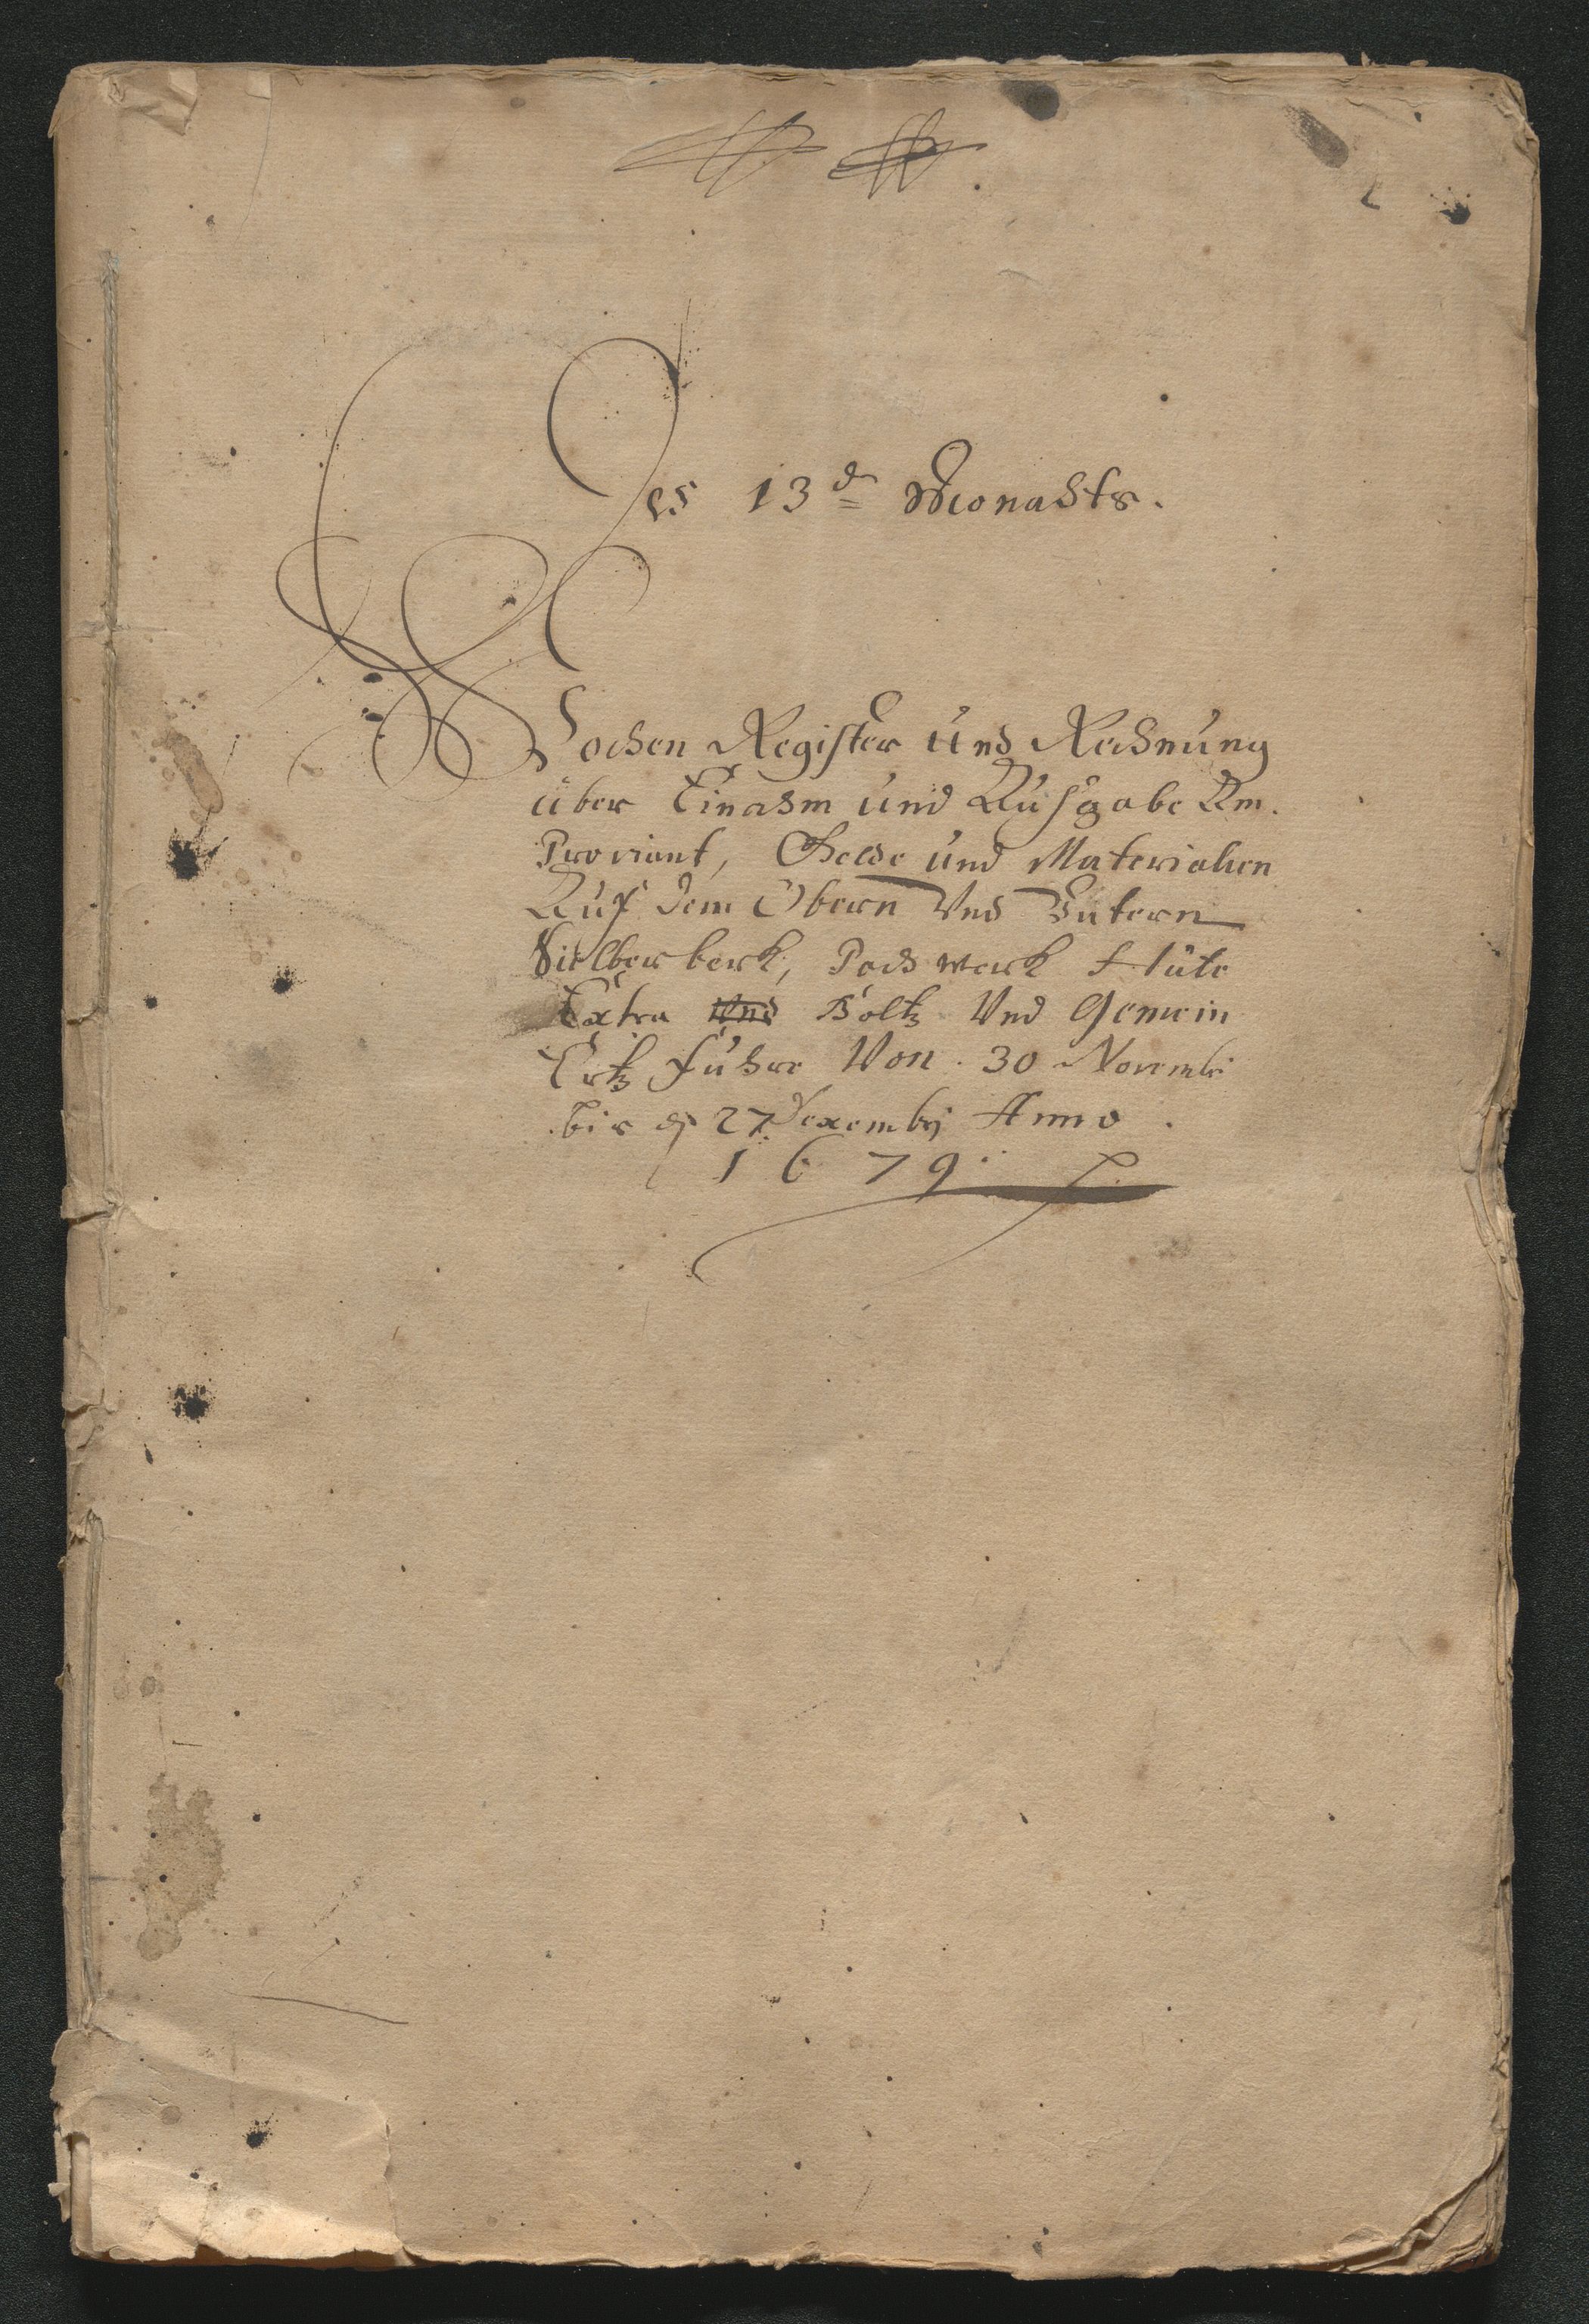 Des 13d Monahts.
Wochen Register und Rechnung
über Einahm und Außgabe Am.
Proviant, Gelde und Materialien
Auf dem Obern Und Untern
Sielber berk, Poch werk Hüte
Extra Und Boltz Und Gemein
Ertz fuhre Von 30 Novembr
bis dj 27 Dexembrj Anno
1679.